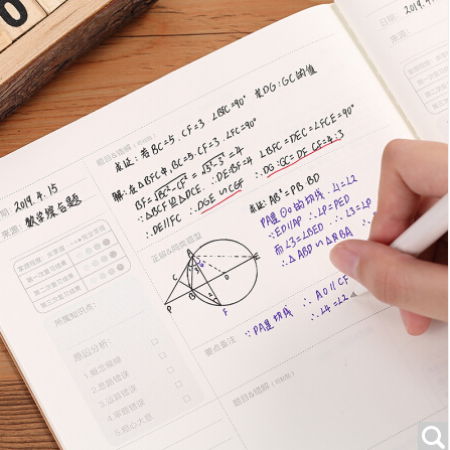 日期: 2019.4.15
来源: 数学综合题
第一次复习结果
第二次复习结果
第三次复习结果
所属知识点:
原因分析:
1.概念模糊
2.思路错误
3.运算错误
4.审题错误
5.粗心大意
题目&错解
求证: 若BC=5, CF=3 ∠BFC=90° 求DG:GC的值
解: 在△BFC中, BC=5, CF=3, ∠FC=90°
BF=√BC²-CF²=√5²-3²=4 ∠BFC=∠DEC=∠FCE=90°
∴△BCF≌△DCE ∴DE:BF=4 ∴DG:GC=DE:CF=4:3
∴DE//FC ∴DGE∽CGF
正解&同类题型
求证: AB²=PB·BD
PA是⊙O的切线 ∴∠1=∠2
∵ED//AP ∴∠P=PED
而∠3=∠BED ∴∠3=∠P
∴△ABD∽△ABA
P
F
重点备注
∵PA是切线 ∴AO//CF
∴∠4=∠2
题目&错解
日期: 2019.4
来源: